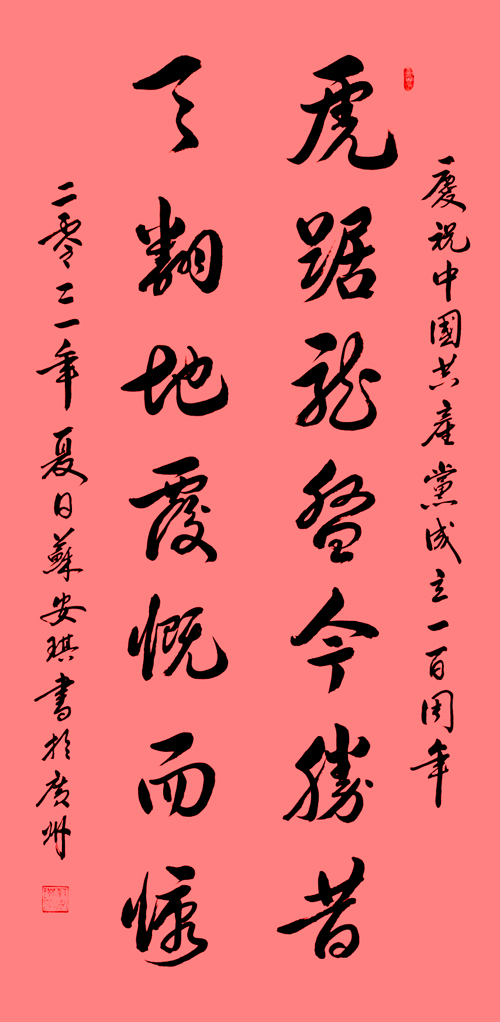 慶祝中國共產黨成立一百周年
虎踞龍盤今勝昔
天翻地覆慨而慷
二零二一年夏日蘇安琪書於廣州